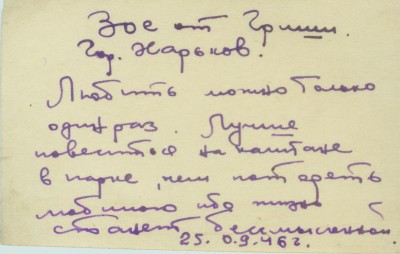 Зое от Гриши.
Гор. Харьков.
Любить можно только
один раз. Лучше
повеситься на каштане
в парке, чем потерять
любимою ибо жизнь
станет бессмысленной.
25. 09. 46 г.